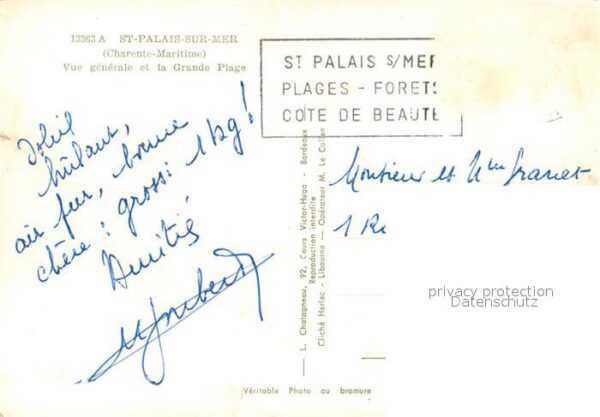 13363 A ST-PALAIS-SUR-MER
(Charente-Maritime)
Vue générale et la Grande Plage
ST PALAIS S/MER
PLAGES - FORETS
COTE DE BEAUTE
Soleil
brûlant,
air pur, bonne
chère : grossi 1 kg !
Amitiés
L. Chatagneau, 92, Cours Victor-Hugo - Bordeaux
Reproduction interdite
Cliché Herlec - Libourne - Opérateur M. Le Collen
Monsieur et Mme
1 R
privacy protection
Datenschutz
Véritable Photo au bromure